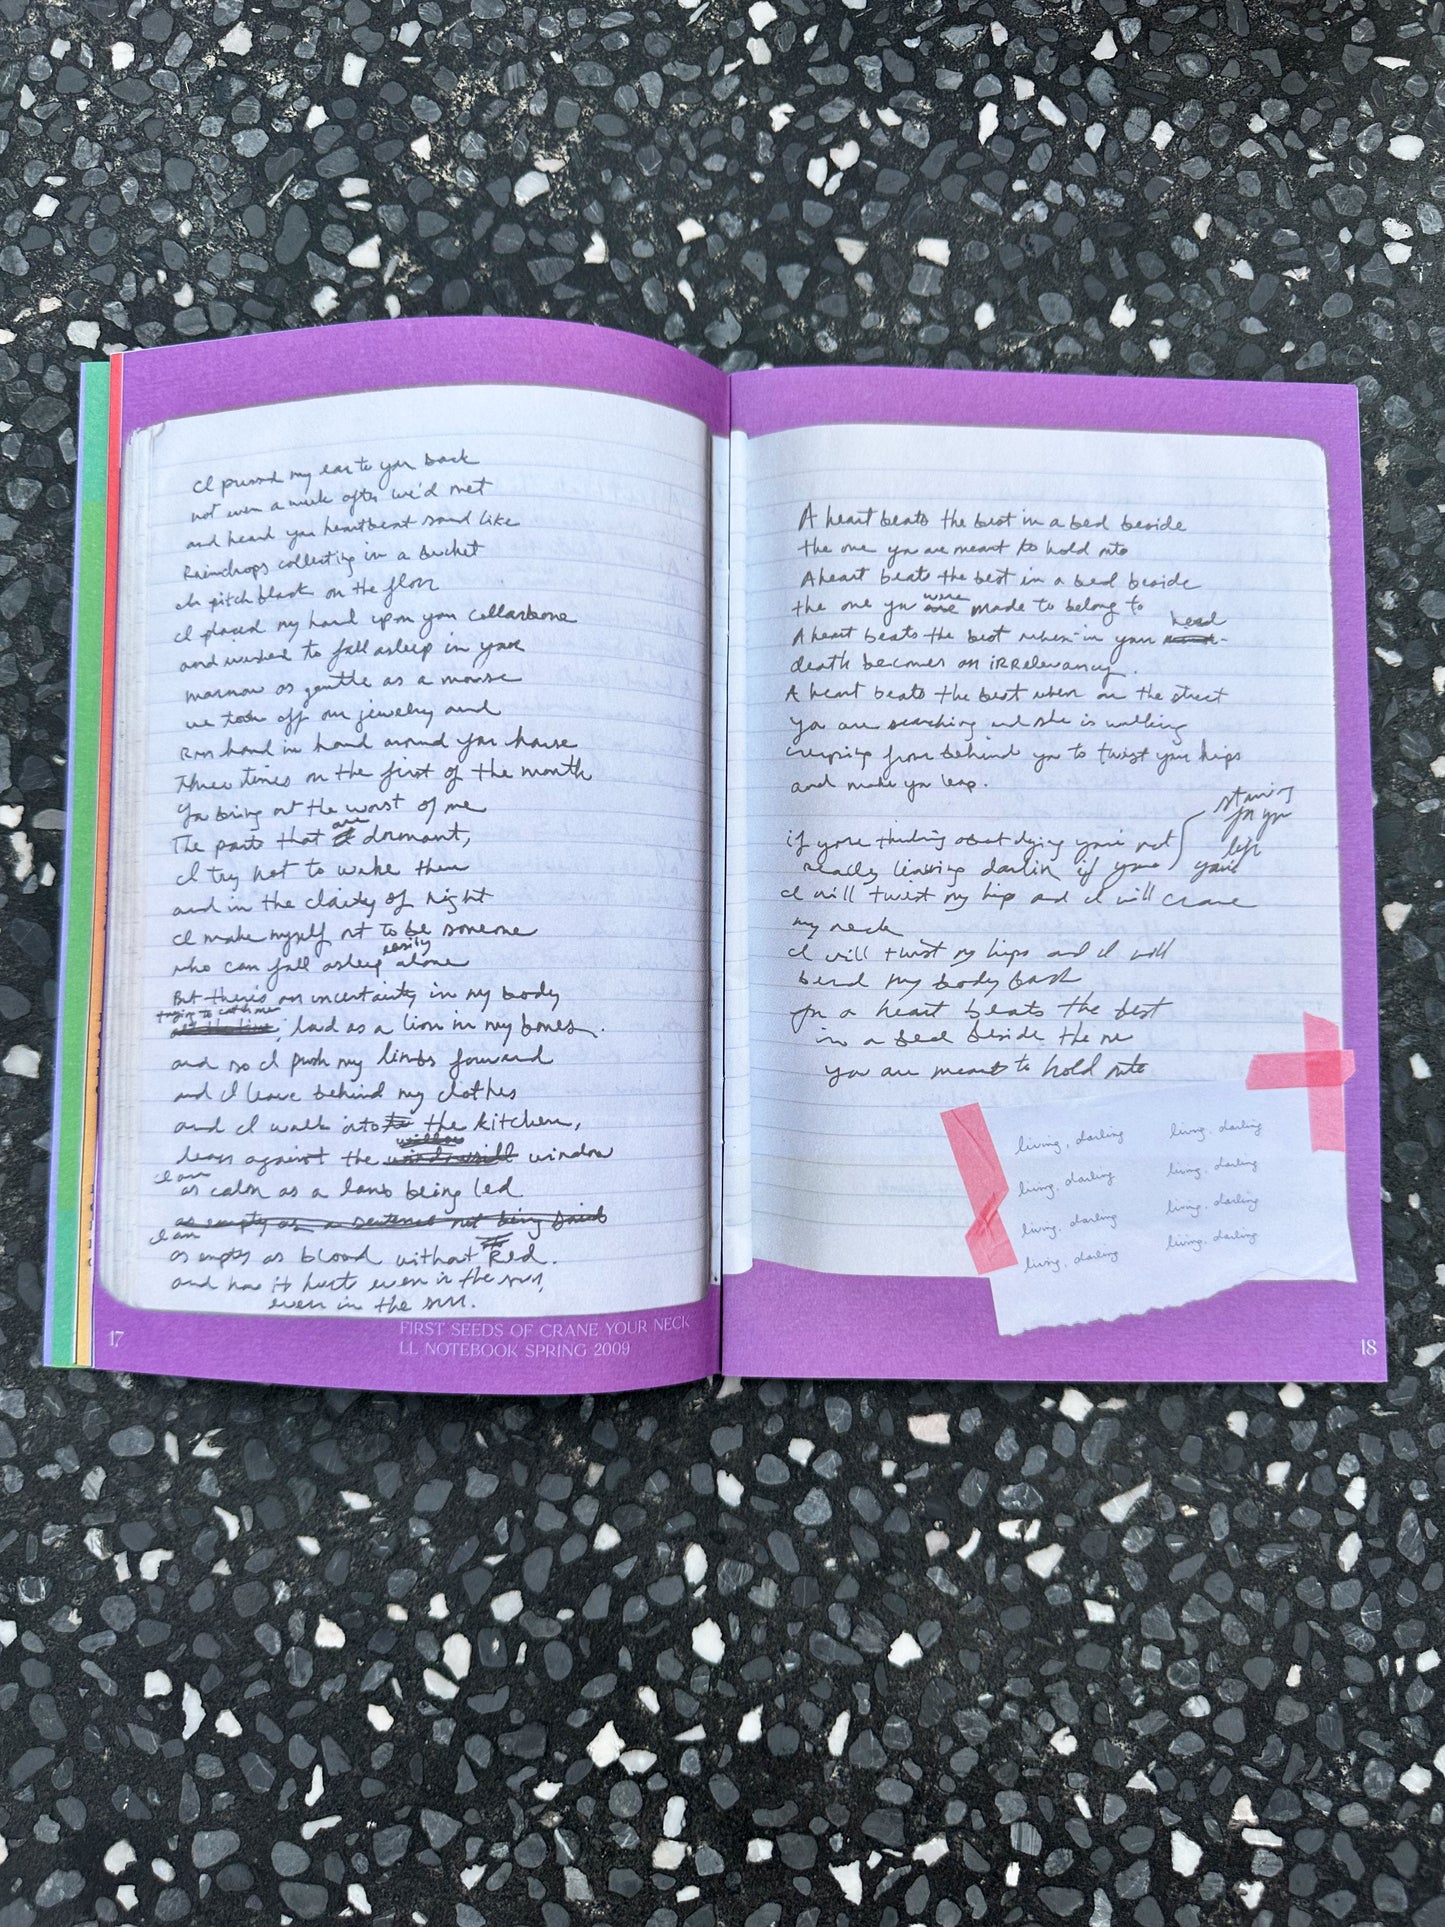 I pressed my ear to your back
not even a week after we'd met
and heard your heartbeat sound like
Raindrops collecting in a bucket
In pitch black on the floor
I placed my hand upon your collarbone
and wished to fall asleep in your
marrow as gentle as a mouse
we took off our jewelry and
Ran hand in hand around your house
Three times on the first of the month
You bring out the worst of me
are
The parts that dormant,
I try not to wake them
and in the clarity of night
I make myself out to be someone
easily
who can fall asleep alone
But there's an uncertainty in my body
trying to catch me
, loud as a lion in my bones.
and so I push my limbs forward
and I leave behind my clothes
and I walk into the kitchen,
leans against the window
I am
as calm as a lamb being led
as empty as a sentence not being said
I am
as empty as blood without Red.
and how it hurts even in the sun,
even in the sun.
17
FIRST SEEDS OF CRANE YOUR NECK
LL NOTEBOOK SPRING 2009
A heart beats the best in a bed beside
the one you are meant to hold onto
A heart beats the best in a bed beside
were
the one you are made to belong to
head
A heart beats the best when in your
death becomes an iRRelevancy.
A heart beats the best when on the street
you are searching and she is walking
creeping from behind you to twist your hips
and make you leap.
staring
for you
if you're thinking about dying you're not
left
really living darlin if you're
you're
I will twist my hip and I will crane
my neck
I will twist my hips and I will
bend my body back
for a heart beats the best
in a bed beside the one
you are meant to hold onto
living, darling living, darling
living, darling living, darling
living, darling living, darling
living, darling living, darling
18